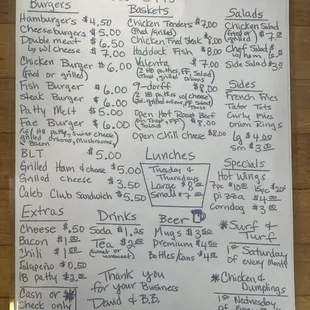 Burgers
Hamburgers $4.50
Cheeseburgers $5.00
Double meat $6.50
w/ cheese $7.00
Chicken Burger $6.00
(Fried or grilled)
Fish Burger $6.00
Steak Burger $6.00
Patty Melt $5.00
Fae Burger $6.00
grilled onions, mushrooms,
Bacon
BLT $5.00
Grilled Ham & cheese $5.00
Grilled cheese $3.50
Caleb Club Sandwich $5.50
Baskets
Chicken Tenders $7.00
(Fried/Grilled)
Chicken Fried Steak $8.00
Haddock Fish $8.00
Valenta $7.00
9-dorff $8.00
Open Hot Roast Beef
Open Chili cheese $8.00
Salads
Chicken Salad
Fried or
grilled
Chef Salad
w/ Ham
Side Salad
Sides
French Fries
Tater Tots
Curly Fries
Onion Rings
Lg $4.00
Sm $3.00
Lunches
Tuesday &
Thursdays
Large $8.00
Small $7.00
Specials
Hot Wings
7pc $10.00 15pc
Pizza $4.00
Corndog $3.00
Extras
Cheese $.50
Bacon $1.00
Chili $1.00
Jalapeño $0.50
HB patty $2.00
Cash or
Check only
Drinks
Soda $1.25
Tea $2.00
Thank you
for your Business
David & B.B.
Beer
Mugs $3.00
Premium $4.00
Bottles/Kans $4.00
*Surf &
Turf
1st Saturday
of every Month
*Chicken &
Dumplings
1st Wednesday